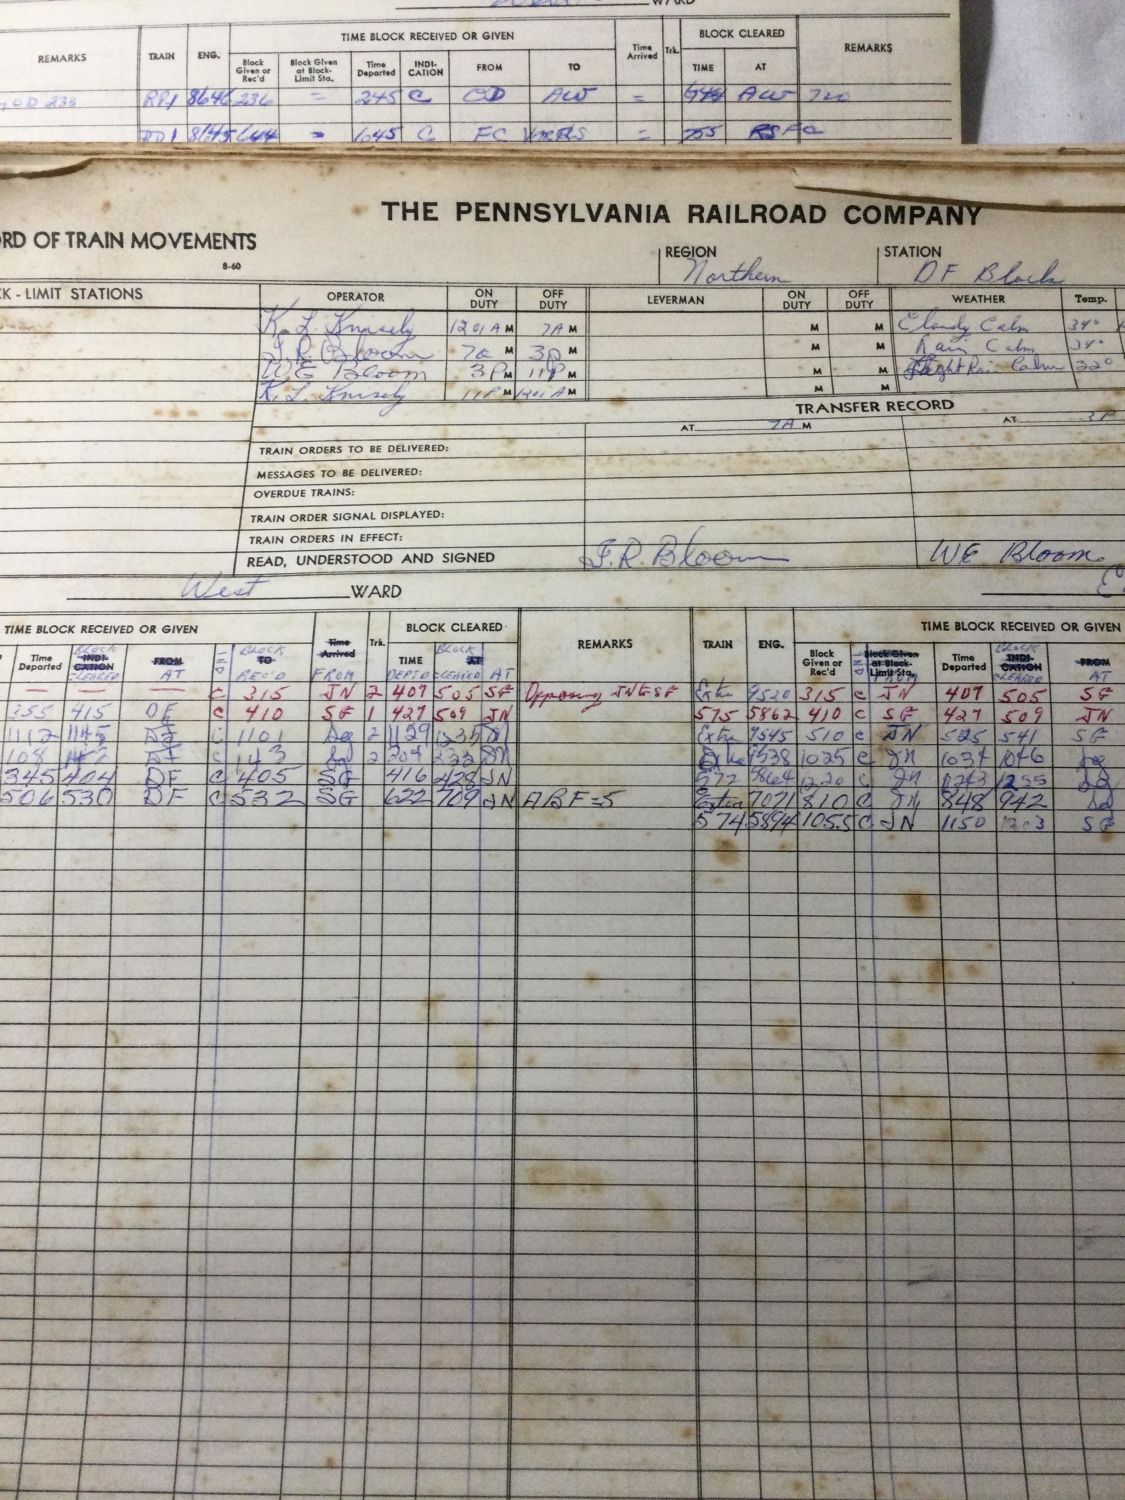 WARD
REMARKS TRAIN ENG. TIME BLOCK RECEIVED OR GIVEN Time Arrived Trk. BLOCK CLEARED REMARKS
Block Given or Rec'd Block Given at Block-Limit Sta. Time Departed INDI-CATION FROM TO TIME AT
OD 235 RP1 8646 236 = 245 C OD AW = AW
8645 644 = 645 C FC = 755
THE PENNSYLVANIA RAILROAD COMPANY
ORD OF TRAIN MOVEMENTS
8-60
REGION Northern STATION DF Block
CK - LIMIT STATIONS OPERATOR ON DUTY OFF DUTY LEVERMAN ON DUTY OFF DUTY WEATHER Temp.
K. L. Knisely 1201 A M 7A M M M Cloudy Calm 34°
J.R. Bloom 7a M 3p M M M Rain Calm 34°
WE Bloom 3P M 11P M M M Light Rain Calm 32°
K. L. Knisely 11P M 1201 A M M M
TRANSFER RECORD
AT 7A M AT 3P
TRAIN ORDERS TO BE DELIVERED:
MESSAGES TO BE DELIVERED:
OVERDUE TRAINS:
TRAIN ORDER SIGNAL DISPLAYED:
TRAIN ORDERS IN EFFECT:
READ, UNDERSTOOD AND SIGNED J.R. Bloom WE Bloom
West WARD
TIME BLOCK RECEIVED OR GIVEN Time Arrived Trk. BLOCK CLEARED REMARKS TRAIN ENG. TIME BLOCK RECEIVED OR GIVEN
Time Departed INDI-CATION BLOCK CLEARED FROM AT IND TO BLOCK REC'D FROM TIME DEPT'D AT BLOCK CLEARED AT Block Given or Rec'd IND Block Given at Block-Limit Sta. FROM Time Departed INDI-CATION BLOCK CLEARED FROM AT
— — — C 315 JN 2 407 505 SG Opposing JN & SG Extra 9520 315 C JN 407 505 SG
355 415 DF C 410 SG 1 427 509 JN 575 5862 410 C SG 427 509 JN
1112 1145 DF C 1101 Sg 2 1129 1235 JN Extra 9545 510 C JN 525 541 SG
108 DF C 143 Sg 2 204 232 JN 9538 1025 C JN 1034 1046 Sg
345 404 DF C 405 SG 416 428 JN 572 5864 1220 C JN 1243 1255 Sg
506 530 DF C 532 SG 622 709 JN ABF=5 Extra 7071 810 C JN 848 942 Sg
574 5894 1055 C JN 1150 1203 SG